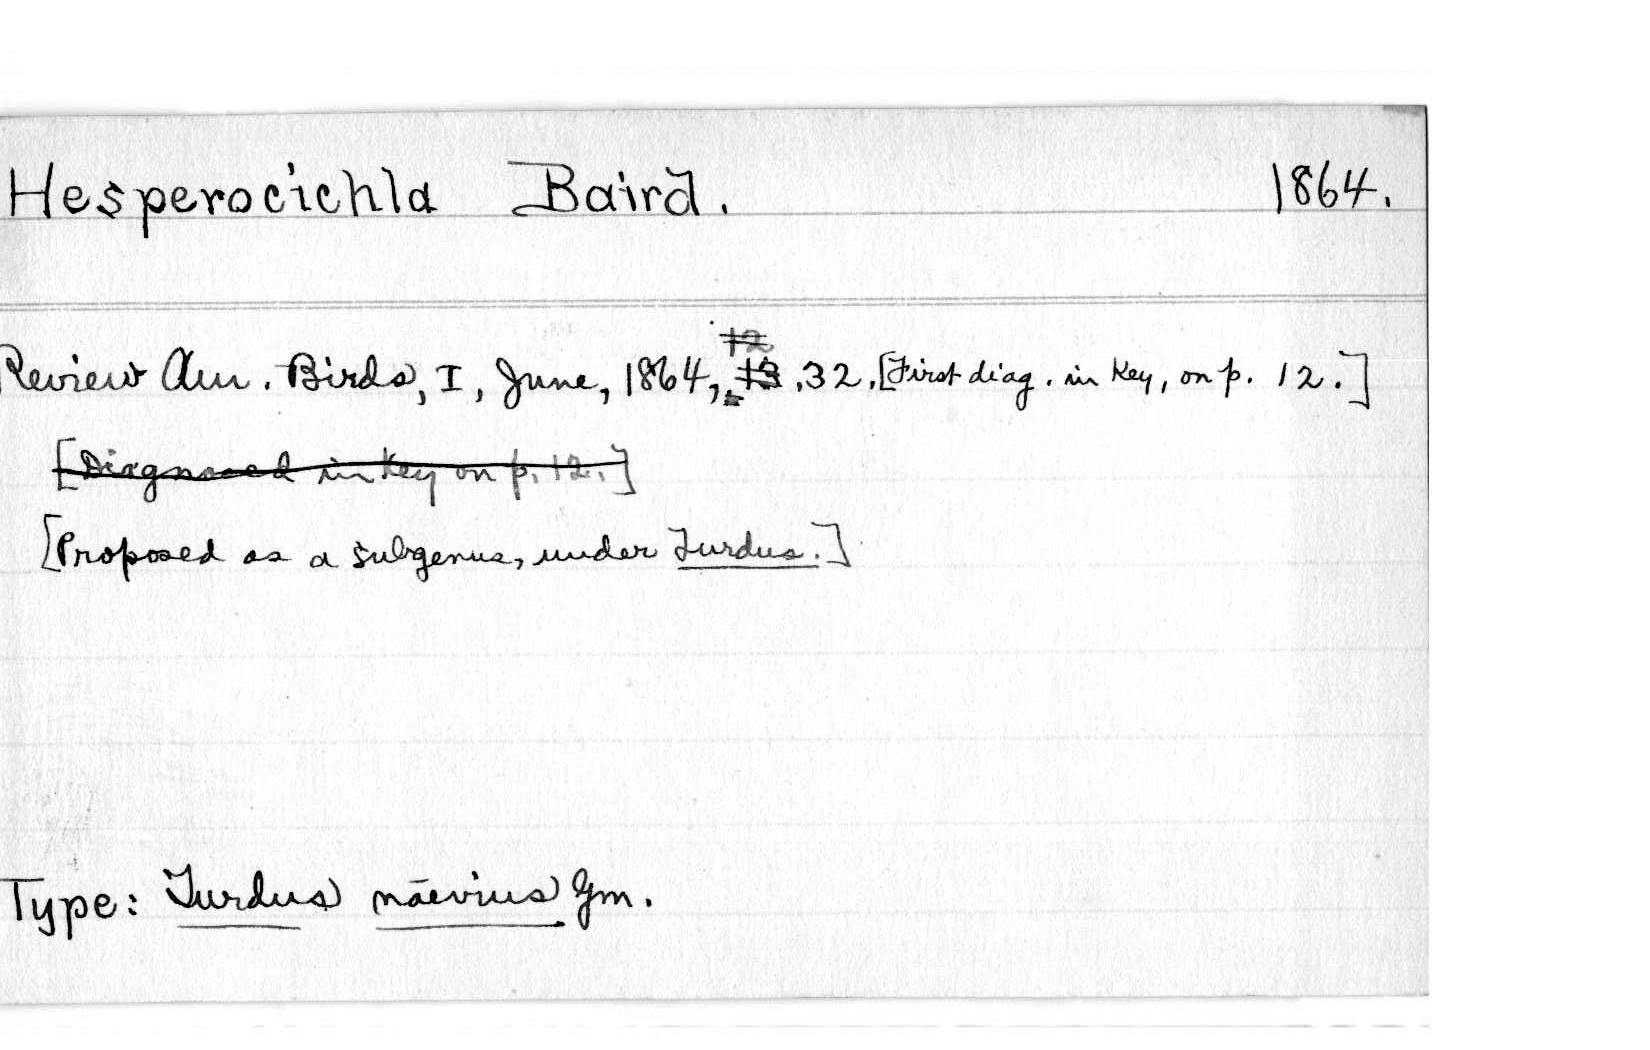 Hesperocichla Baird. 1864.
12
Review Am. Birds, I, June, 1864, 13, 32. [First diag. in Key, on p. 12.]
[Diagnosed in Key on p. 12.]
[Proposed as a subgenus, under Turdus.]
Type: Turdus nævius Gm.